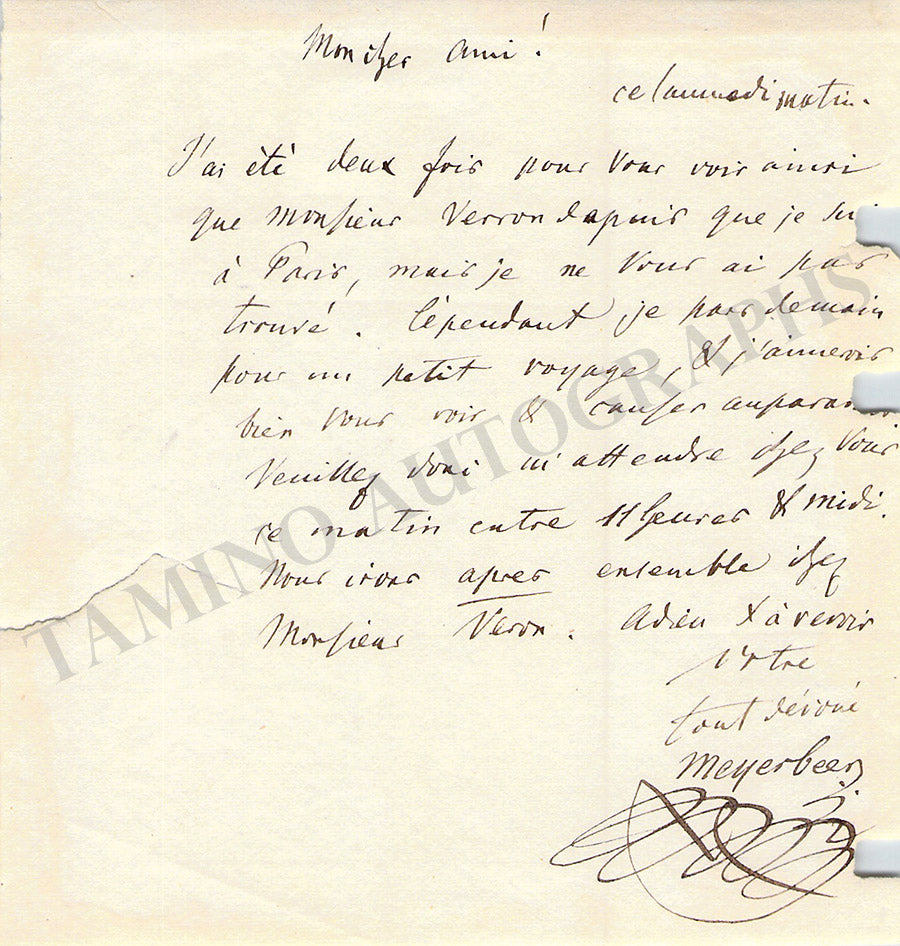 Mon cher Ami!
ce sammedi matin.
J'ai été deux fois pour Vous voir ainsi
que Monsieur Verron depuis que je sui
à Paris, mais je ne Vous ai pas
trouvé. Cépendant je pars demain
pour un petit voyage, & j'aimerois
bien Vous voir & causer auparavant
Veuillez donc m'attendre chez Vous
ce matin entre 11 heures & midi.
Nous irons apres ensemble chez
Monsieur Veron. Adieu & à revoir
Votre
tout dévoué
Meyerbeer
TAMINO AUTOGRAPHS